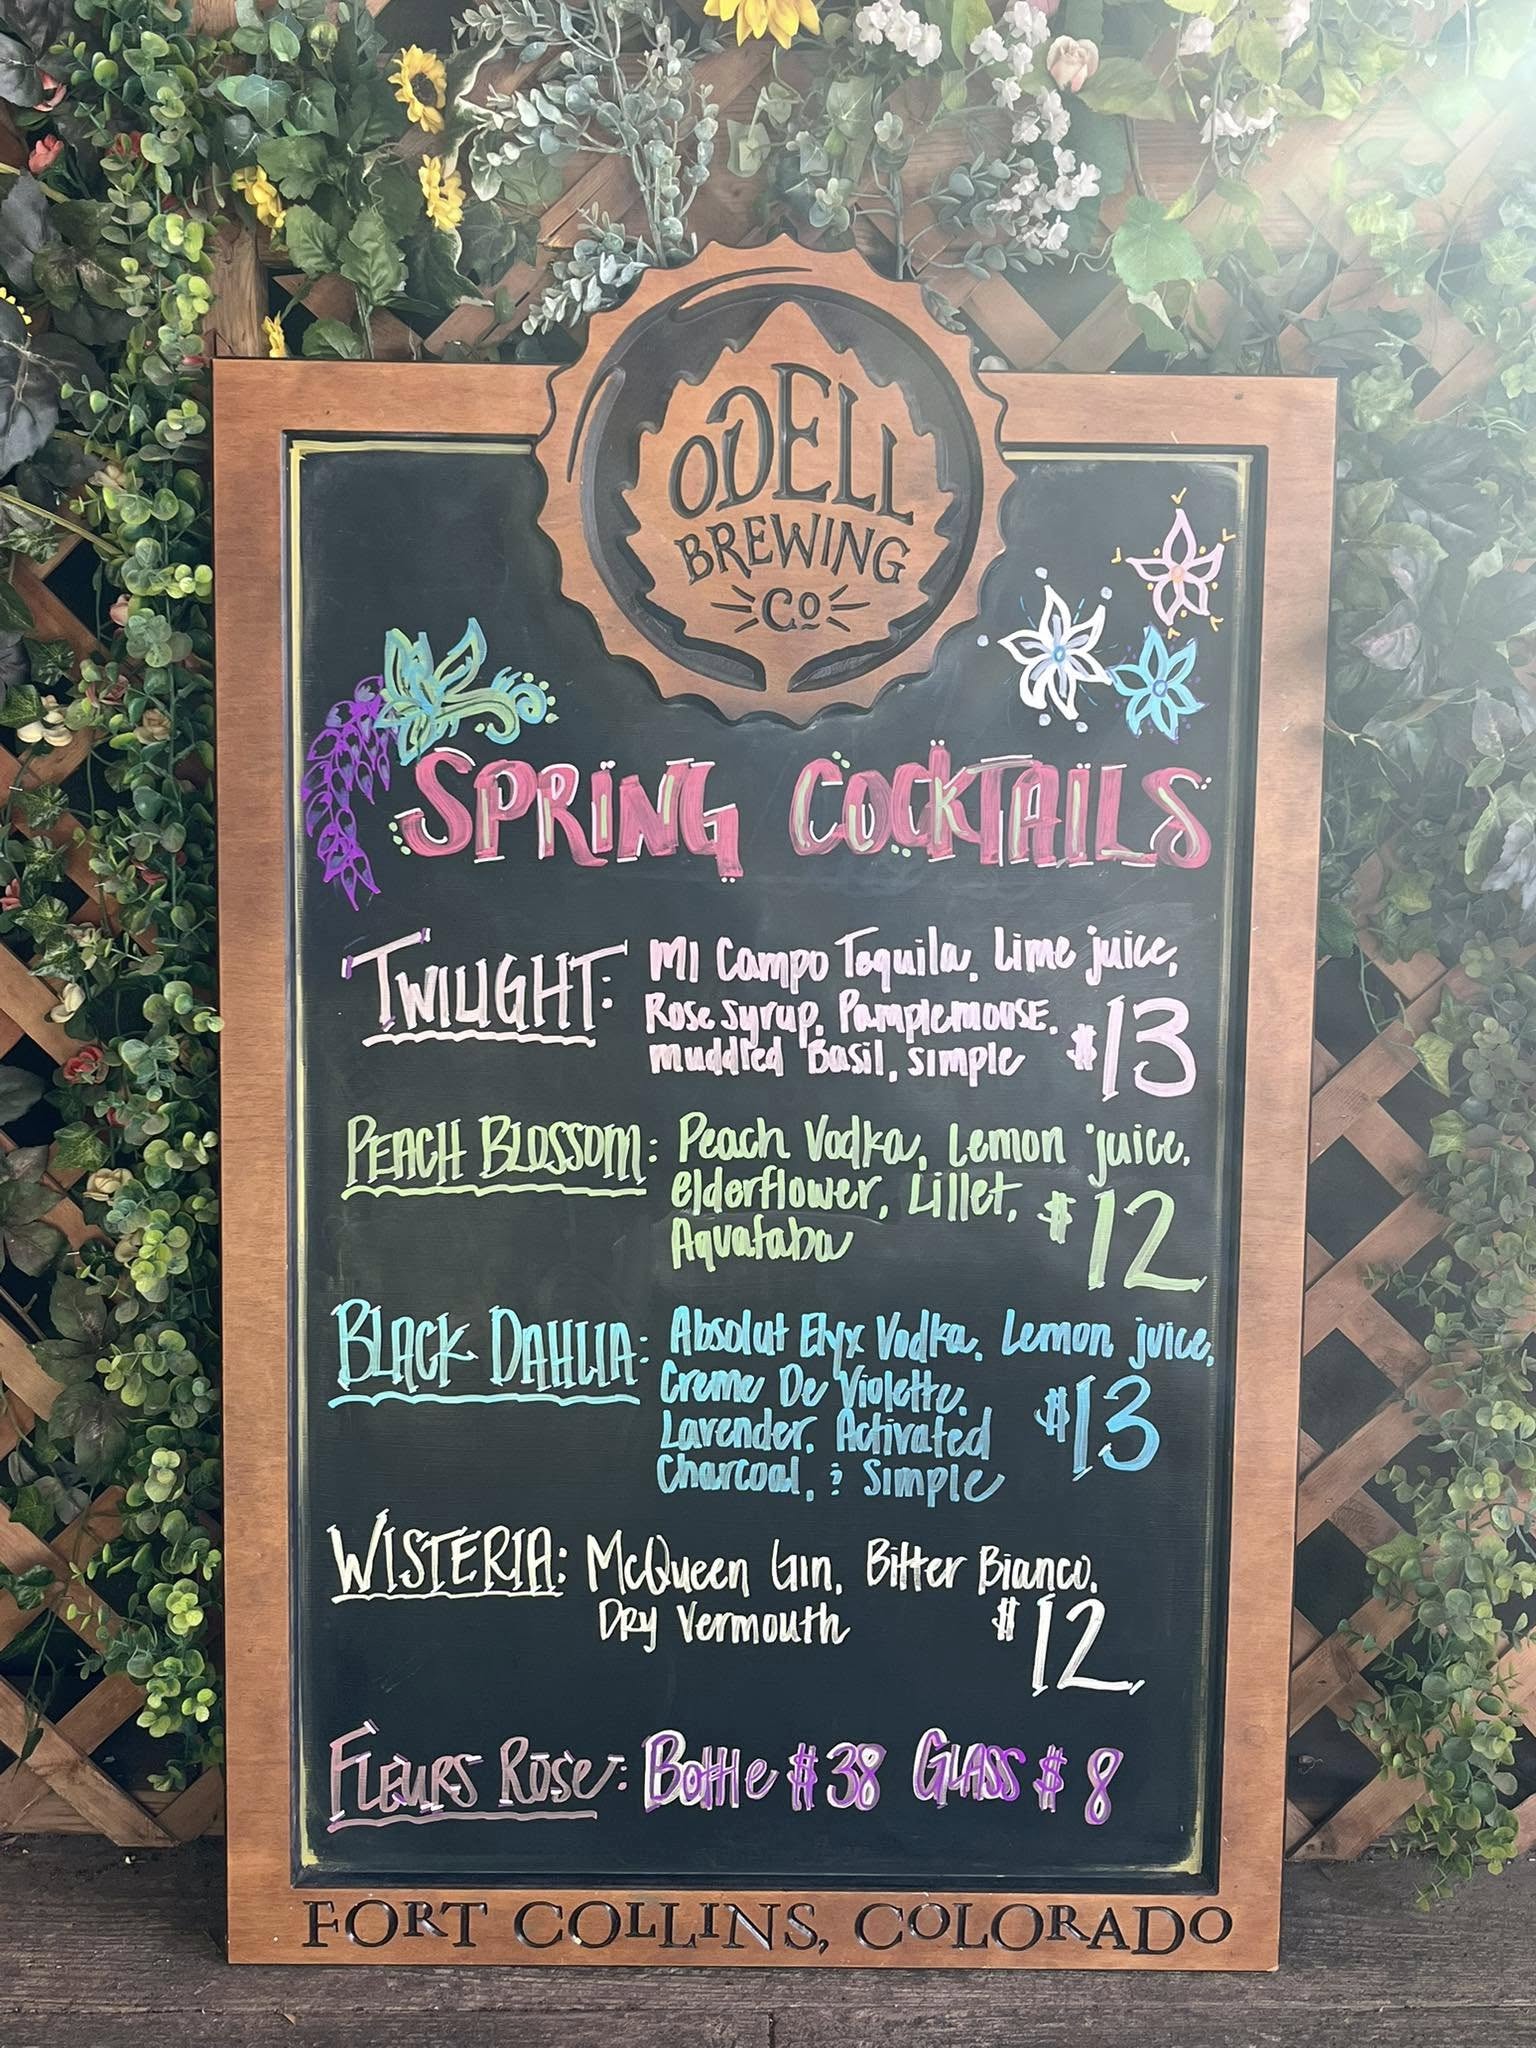 ODELL
BREWING
Co
SPRING COCKTAILS
TWILIGHT: Mi Campo Tequila, Lime juice,
Rose syrup, Pamplemousse,
muddled Basil, simple $13
PEACH BLOSSOM: Peach Vodka, Lemon juice,
elderflower, Lillet,
Aquafaba $12
BLACK DAHLIA: Absolut Elyx Vodka, Lemon juice,
Creme De Violette,
Lavender, Activated
Charcoal, & Simple $13
WISTERIA: McQueen Gin, Bitter Bianco,
Dry Vermouth $12
FLEURS ROSE: Bottle $38 GLASS $8
FORT COLLINS, COLORADO